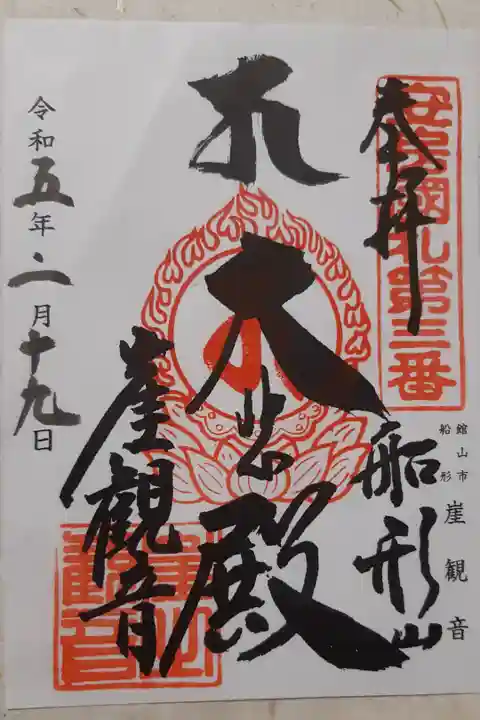 奉拝
安房國札第三番
船形山
館山市
船形
崖観音
大悲殿
崖觀音
令和五年二月十九日